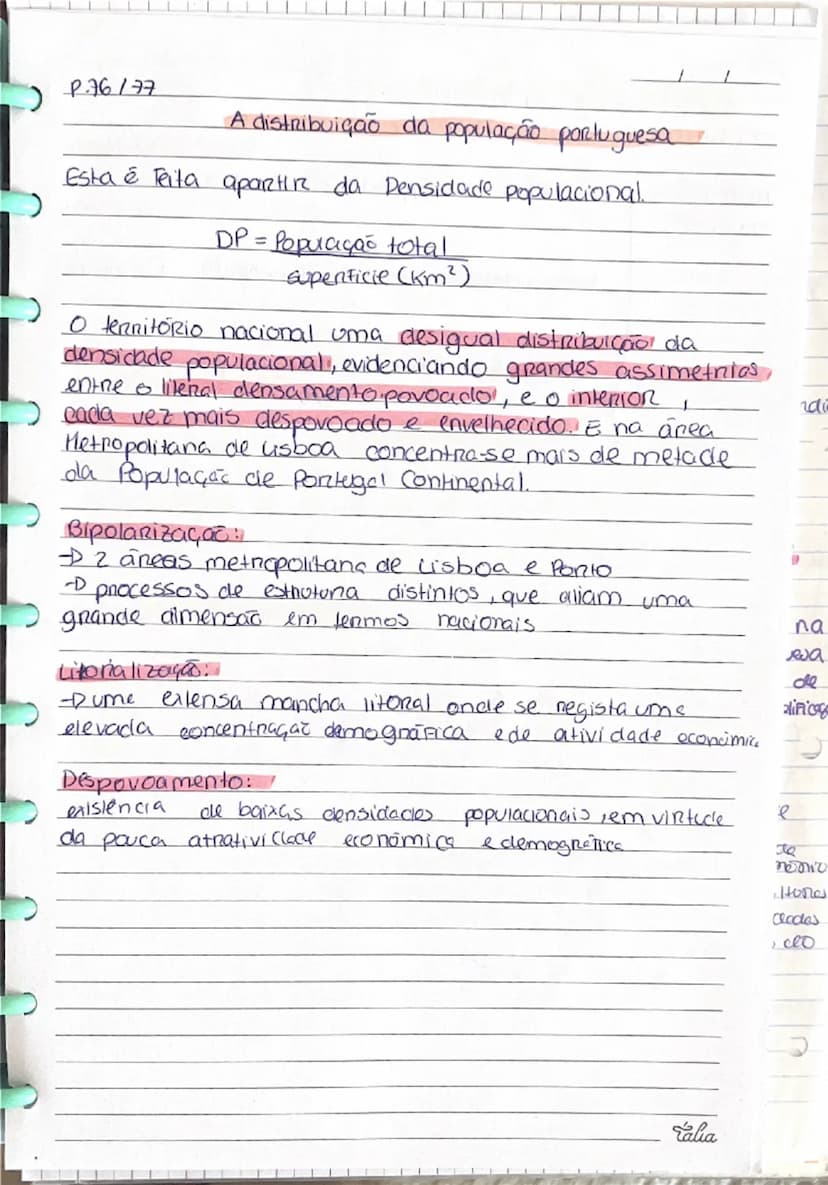 / /
P.76/77
A distribuição da população portuguesa
Esta é feita apartir da Densidade populacional.
DP = População total
superfície (Km²)
O território nacional uma desigual distribuição da
densidade populacional, evidenciando grandes assimetrias
entre o literal densamento povoado, e o interior,
cada vez mais despovoado e envelhecido. E na área
Metropolitana de Lisboa concentra-se mais de metade
da População de Portugal Continental.
Bipolarização:
→ 2 áreas metropolitana de Lisboa e Porto
→ processos de estrutura distintos, que aliam uma
grande dimensão em termos nacionais
Litorialização:
→ uma extensa mancha litoral onde se regista uma
elevada concentração demográfica e de atividade económic
Despovoamento:
existência de baixas densidades populacionais, em virtude
da pouca atratividade económica e demográfica
na
de
e
Tália